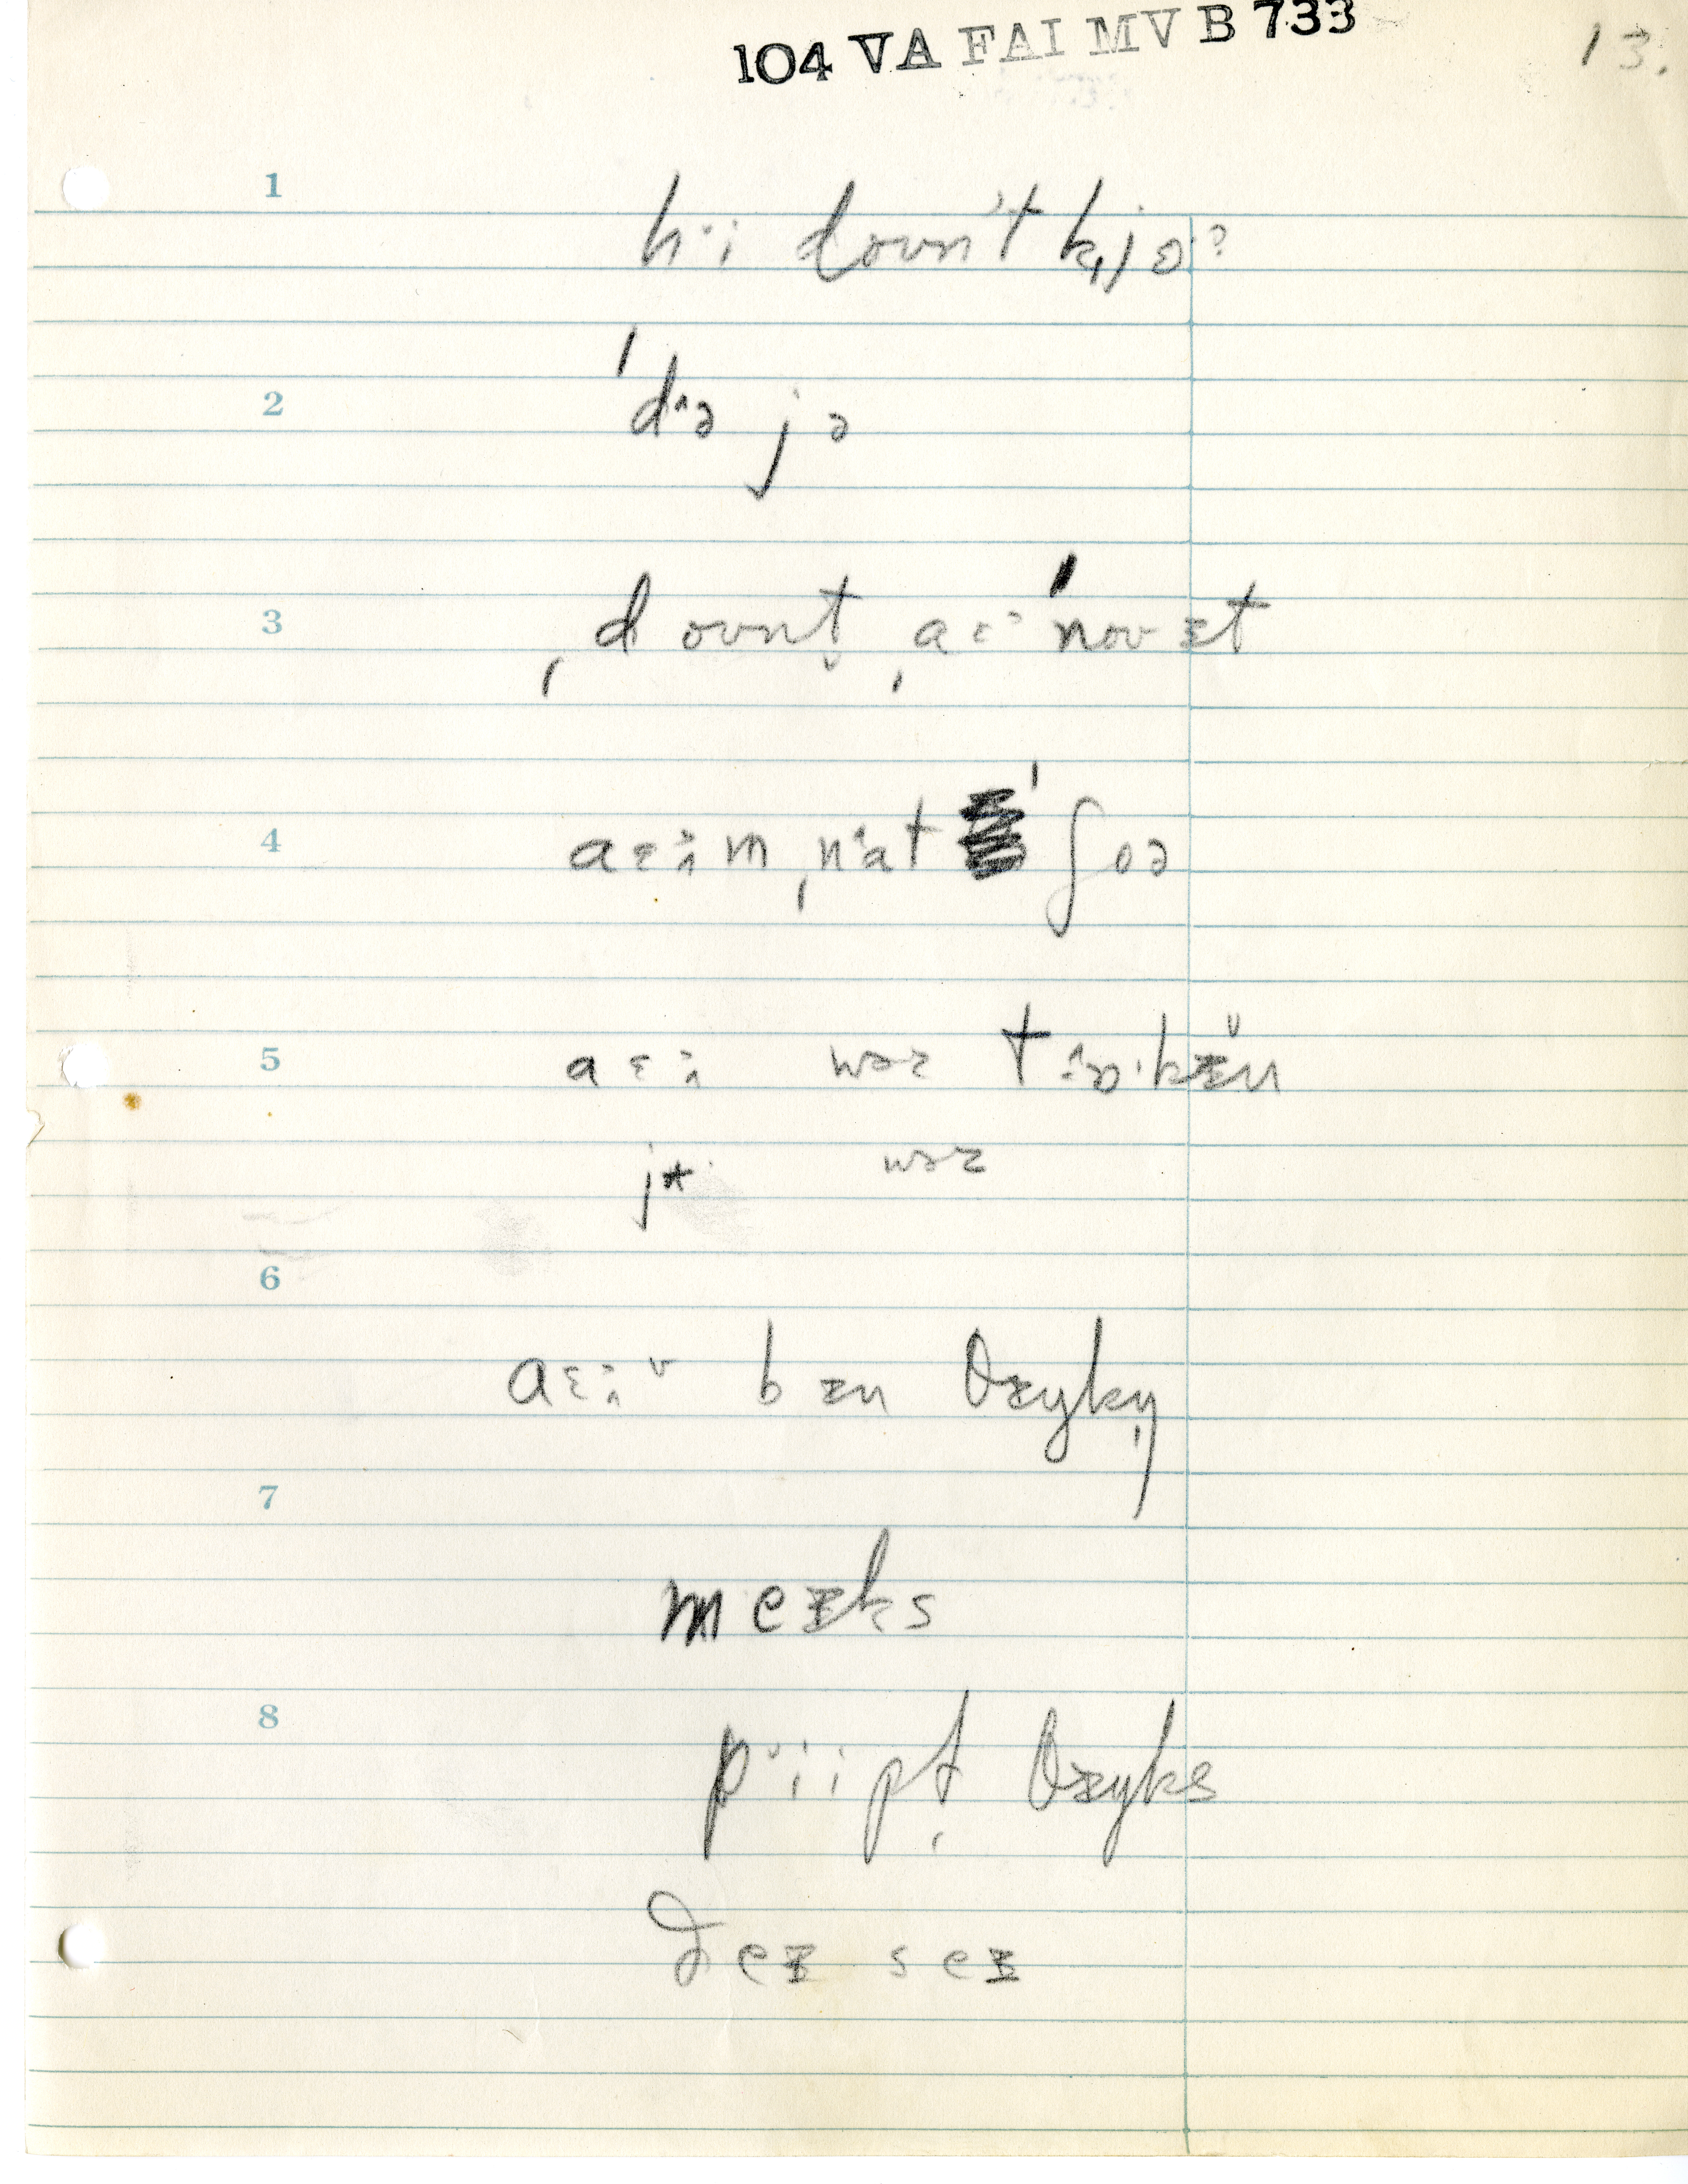 104 VA FAI MV B 733
13.
1
h˔i dounʼt k̟jɔ?
2
ˈd˄ə jə
3
ˌdount̬ ˌaɛ˃ ˈnouɪt
4
aɛ˃˄m ˌn˂at ˈʃoə
5
aɛ˃˄ wəz t˄ɒ·kɪ̆n
j* wəz
6
aɛ˃˄v bɪn θɪŋkn̩
7
meɪks
8
p˅iipt̩ θɪŋks
ðeɪ seɪ